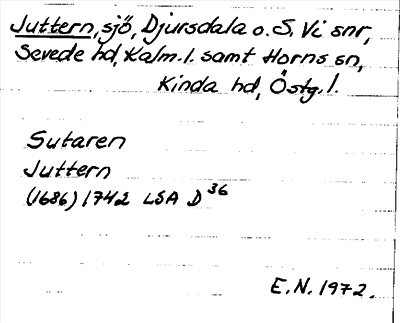 Juttern, sjö, Djursdala o. S. Vi snr,
Sevede hd, Kalm. l. samt Horns sn,
Kinda hd, Östg. l.
Sutaren
Juttern
(1686) 1742 LSA D 36
E.N. 1972.